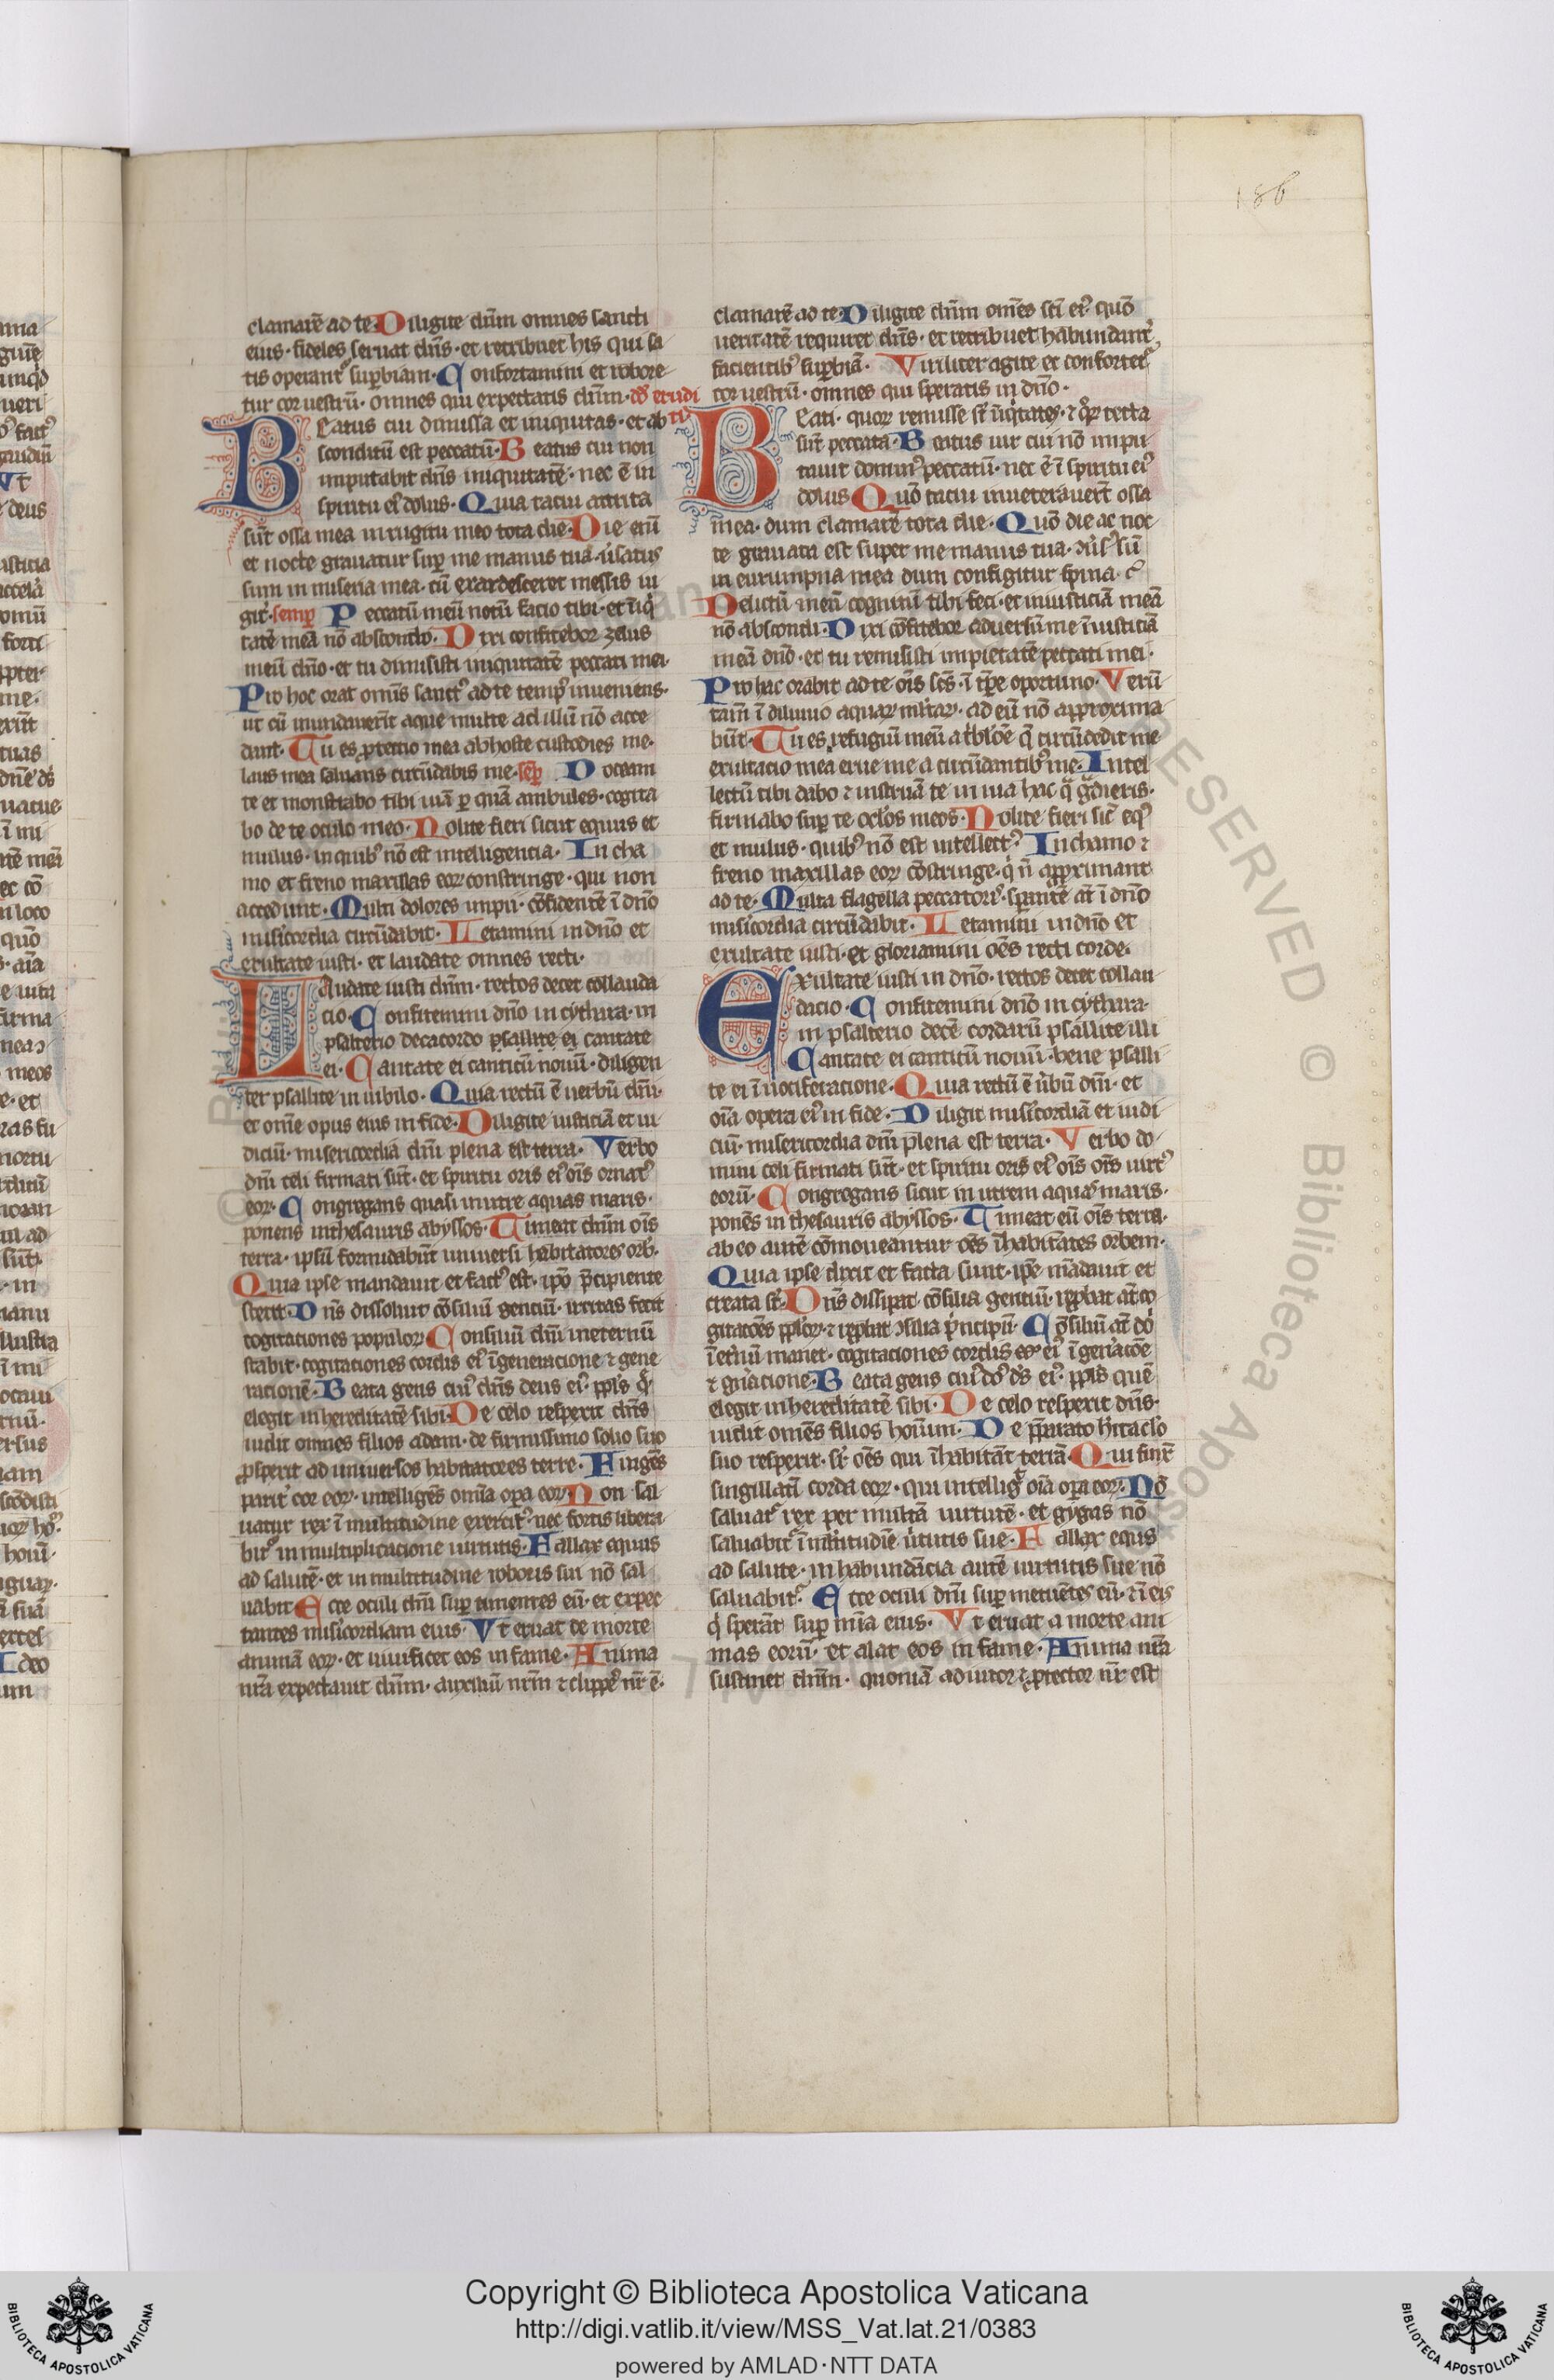 186
clamarē ad te Diligite dn̄m omnes sancti
eius· fideles seruat dn̄s· et retribuet his qui sa
tis operantᷣ suꝑbiam· Confortamini et robore
tur cor uestrū· omnes qui expectatis dn̄m· dd̄ erudi
Beatus cui dimissa et iniquitas· et ab tꝰ
sconditū est peccatū· Beatus cui non
imputabit dn̄s iniquitatē· nec ē in
spiritu eiꝰ dolus· Quia tacui attrita
sūt ossa mea in rugitu meo tota die· Die enī
et nocte grauatur suꝑ me manus tua· ūsatus
sum in miseria mea· cū exardesceret messis iu
git̉· semꝑ Peccatū meū notū facio tibi· et īiqi
tatē meā nō abscondo· Dixi confitebor zelus
meū dn̄o· et tu dimisisti iniquitatē peccati mei·
Pro hoc orat omīs sanctꝰ ad te tempꝰ inueniens·
ut cū inundauerīt aque multe ad illū nō acce
dunt· Tu es ꝓtectio mea ab hoste custodies me·
laus mea saluans circūdabis me· seꝑ Doceam
te et monstrabo tibi uiā ꝑ quā ambules· cogita
bo de te oculo meo· Nolite fieri sicut equus et
mulus· in quibꝰ nō est intelligencia· In cha
mo et freno maxillas eoꝝ constringe· qui non
accedunt· Multi dolores impii· cōfidentē ī dn̄o
misicordia circūdabit· Letamini in dn̄o et
exultate iusti· et laudate omnes recti·
Laudate iusti dn̄m· rectos decet collauda
cio· Confitemini dn̄o in cythara· in
psalterio decacordo psallite ei cantate
ei· Cantate ei canticū nouū· diligen
ter psallite in iubilo· Quia rectū ē uerbū dn̄i·
et om̄e opus eius in fide· Diligite iusticiā et iu
diciū· misericordia dn̄i plena est terra· Verbo
dn̄i celi firmati sūt· et spiritu oris eiꝰ oīs ornatꝰ
eoꝝ· Congregans quasi in utre aquas maris·
ponens in thesauris abyssos· Timeat dn̄m oīs
terra· ipsū formidabūt uniuersi habitatores orb̉·
Quia ipse mandauit et factꝰ est· ip̄o p̄cipiente
stetit· Dn̄s dissoluit cōsiliū gentiū· irritas fecit
cogitationes populoꝝ Consiliū dn̄i in eternū
stabit· cogitationes cordis eiꝰ ī generacione ⁊ gene
rationē· Beata gens cuiꝰ dn̄s deus eiꝰ· ppl̄s q̄
elegit in hereditatē sibi· De celo respexit dn̄s
uidit omnes filios adam· de firmissimo solio suo
ꝓspexit ad uniuersos habitatores terre· Fingēs
parit̉ cor eoꝝ· intelligēs omīa oꝑa eoꝝ Non sal
uatur rex ī multitudine exercitꝰ· nec fortis libera
bitᷣ in multiplicacione uirtutis· Fallax equus
ad salutē· et in multitudine roboris sui nō sal
uabit Ecce oculi dn̄i suꝑ timentes eū· et expec
tantes misicordiam eius· Vt eruat de morte
animā eoꝝ· et uiuificet eos in fame· Anima
nr̄a expectauit dn̄m· auxiliū nr̄m ⁊ clippꝰ nr̄ ē·
clamarē ad te· Diligite dn̄m omēs sc̄i eiꝰ· quō
ueritatē requiret dn̄s· et retribuet habundant̉
facientibꝰ suꝑbiā· Viriliter agite et confortetᷣ
cor uestrū· omnes qui speratis in dn̄o·
Beati· quoꝝ remisse st̄ īiq̄tates· ⁊ q̊ꝝ tecta
sūt peccata· Beatus uir cui nō impu
tauit dominꝰ peccatū· nec ē ī spiritu eiꝰ
dolus Quō tacui inueterauerūt ossa
mea· dum clamarē tota die· Quō die ac noc
te grauata est super me manus tua· ɔūsꝰ sū
in eurumpna mea dum configitur spina·
Delictū meū cognitū tibi feci· et iniusticiā meā
nō abscondi· Dixi cōfitebor aduersū me īiusticiā
meā dn̄o· et tu remisisti impietatē peccati mei·
Pro hac orabit ad te oīs sc̄s· ī tp̄re oportuno· Verū
tam̄ ī diluuio aquaꝝ ml̄taꝝ· ad eū nō approxima
būt· Tu es refugiū meū a tbl̄oe q̄ circūdedit me
exultacio mea erue me a circūdantibꝰ me· Intel
lectū tibi dabo ⁊ instruā te in uia hac q̄ gdieris·
firmabo suꝑ te ocl̄os meos· Nolite fieri sic̄ eqꝰ
et mulus· quibꝰ nō est intellectꝰ· In chamo ⁊
freno maxillas eoꝝ cōstringe· q̇ n̄ apꝓximant
ad te· Multa flagella peccatoris· sꝑantē at̄ ī dn̄o
misicordia circūdabit· Letamini in dn̄o et
exultate iusti· et gloriamini oēs recti corde·
Exultate iusti in dn̄o· rectos decet collau
dacio· Confitemini dn̄o in cythara·
in psalterio decē cordarū psallite illi
Cantate ei canticū nouū· bene psalli
te ei ī uociferacione· Quia rectū ē ūbū dn̄i· et
oīa opera eiꝰ in fide· Diligit misicordiā et iudi
ciū· misericordia dn̄i plena est terra· Verbo do
mini celi firmati sūt· et spiritu oris eiꝰ oīs oīs uirtꝰ
eorū· Congregans sicut in utrem aquas maris·
ponēs in thesauris abyssos· Timeat eū oīs terra·
ab eo autē cōmoueantur oēs īhabitātes orbem·
Quia ipse dixit et facta sunt· ip̄e mādauit et
creata st̄· Dn̄s dissipat cōsilia gentiū· reꝓbat at̄ co
gitacōes pplōꝝ· ⁊ reꝓbat ɔsilia p̄ncipū· Cōsiliū at̄ dn̄i
ī et̉nū manet· cogitaciones cordis eiꝰ ī gen̉acōe
⁊ gn̄acione· Beata gens cuiꝰ dn̄s ds̄ eiꝰ· ppl̄s quē
elegit in hereditatē sibi· De celo respexit dn̄s·
uidit omēs filios hoīum· De p̄parato h̉itaclo
suo respexit· sr̄ oēs qui īhabitāt terrā· Qui finxit
singillatī corda eoꝝ· qui intelligit oīa oꝑa eoꝝ· Nō
saluatᷣ rex per multā uirtutē· et gygas nō
saluabitᷣ ī ml̄titudīe ūtutis sue· Fallax equs
ad salute· in habundācia autē uirtutis sue nō
saluabitᷣ· Ecce oculi dn̄i suꝑ metuētes eū· ⁊ ī eis
q̇ sperāt suꝑ mīa eius· Vt eruat a morte ani
mas eorū· et alat eos in fame· Anima nr̄a
sustinet dn̄m· quoniā adiutor ⁊ ꝓtector nr̄ est
Copyright © Biblioteca Apostolica Vaticana
http://digi.vatlib.it/view/MSS_Vat.lat.21/0383
powered by AMLAD·NTT DATA
BIBLIOTECA APOSTOLICA VATICANA
BIBLIOTECA APOSTOLICA VATICANA